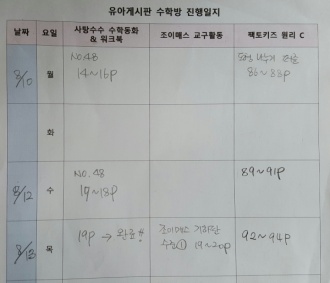 유아게시판 수학방 진행일지
날짜 요일 사탕수수 수학동화 & 워크북 조이매스 교구활동 팩토키즈 원리 C
8/10 월 NO.48 14~16p 86~88p
화
8/12 수 NO.48 17~18p 89~91p
8/13 목 19p → 완료!! 조이매스 기하판 수업① 19~20p 92~94p